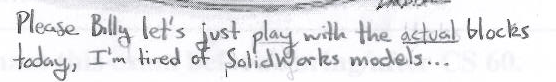 Please Billy let's just play with the actual blocks
today, I'm tired of SolidWorks models...